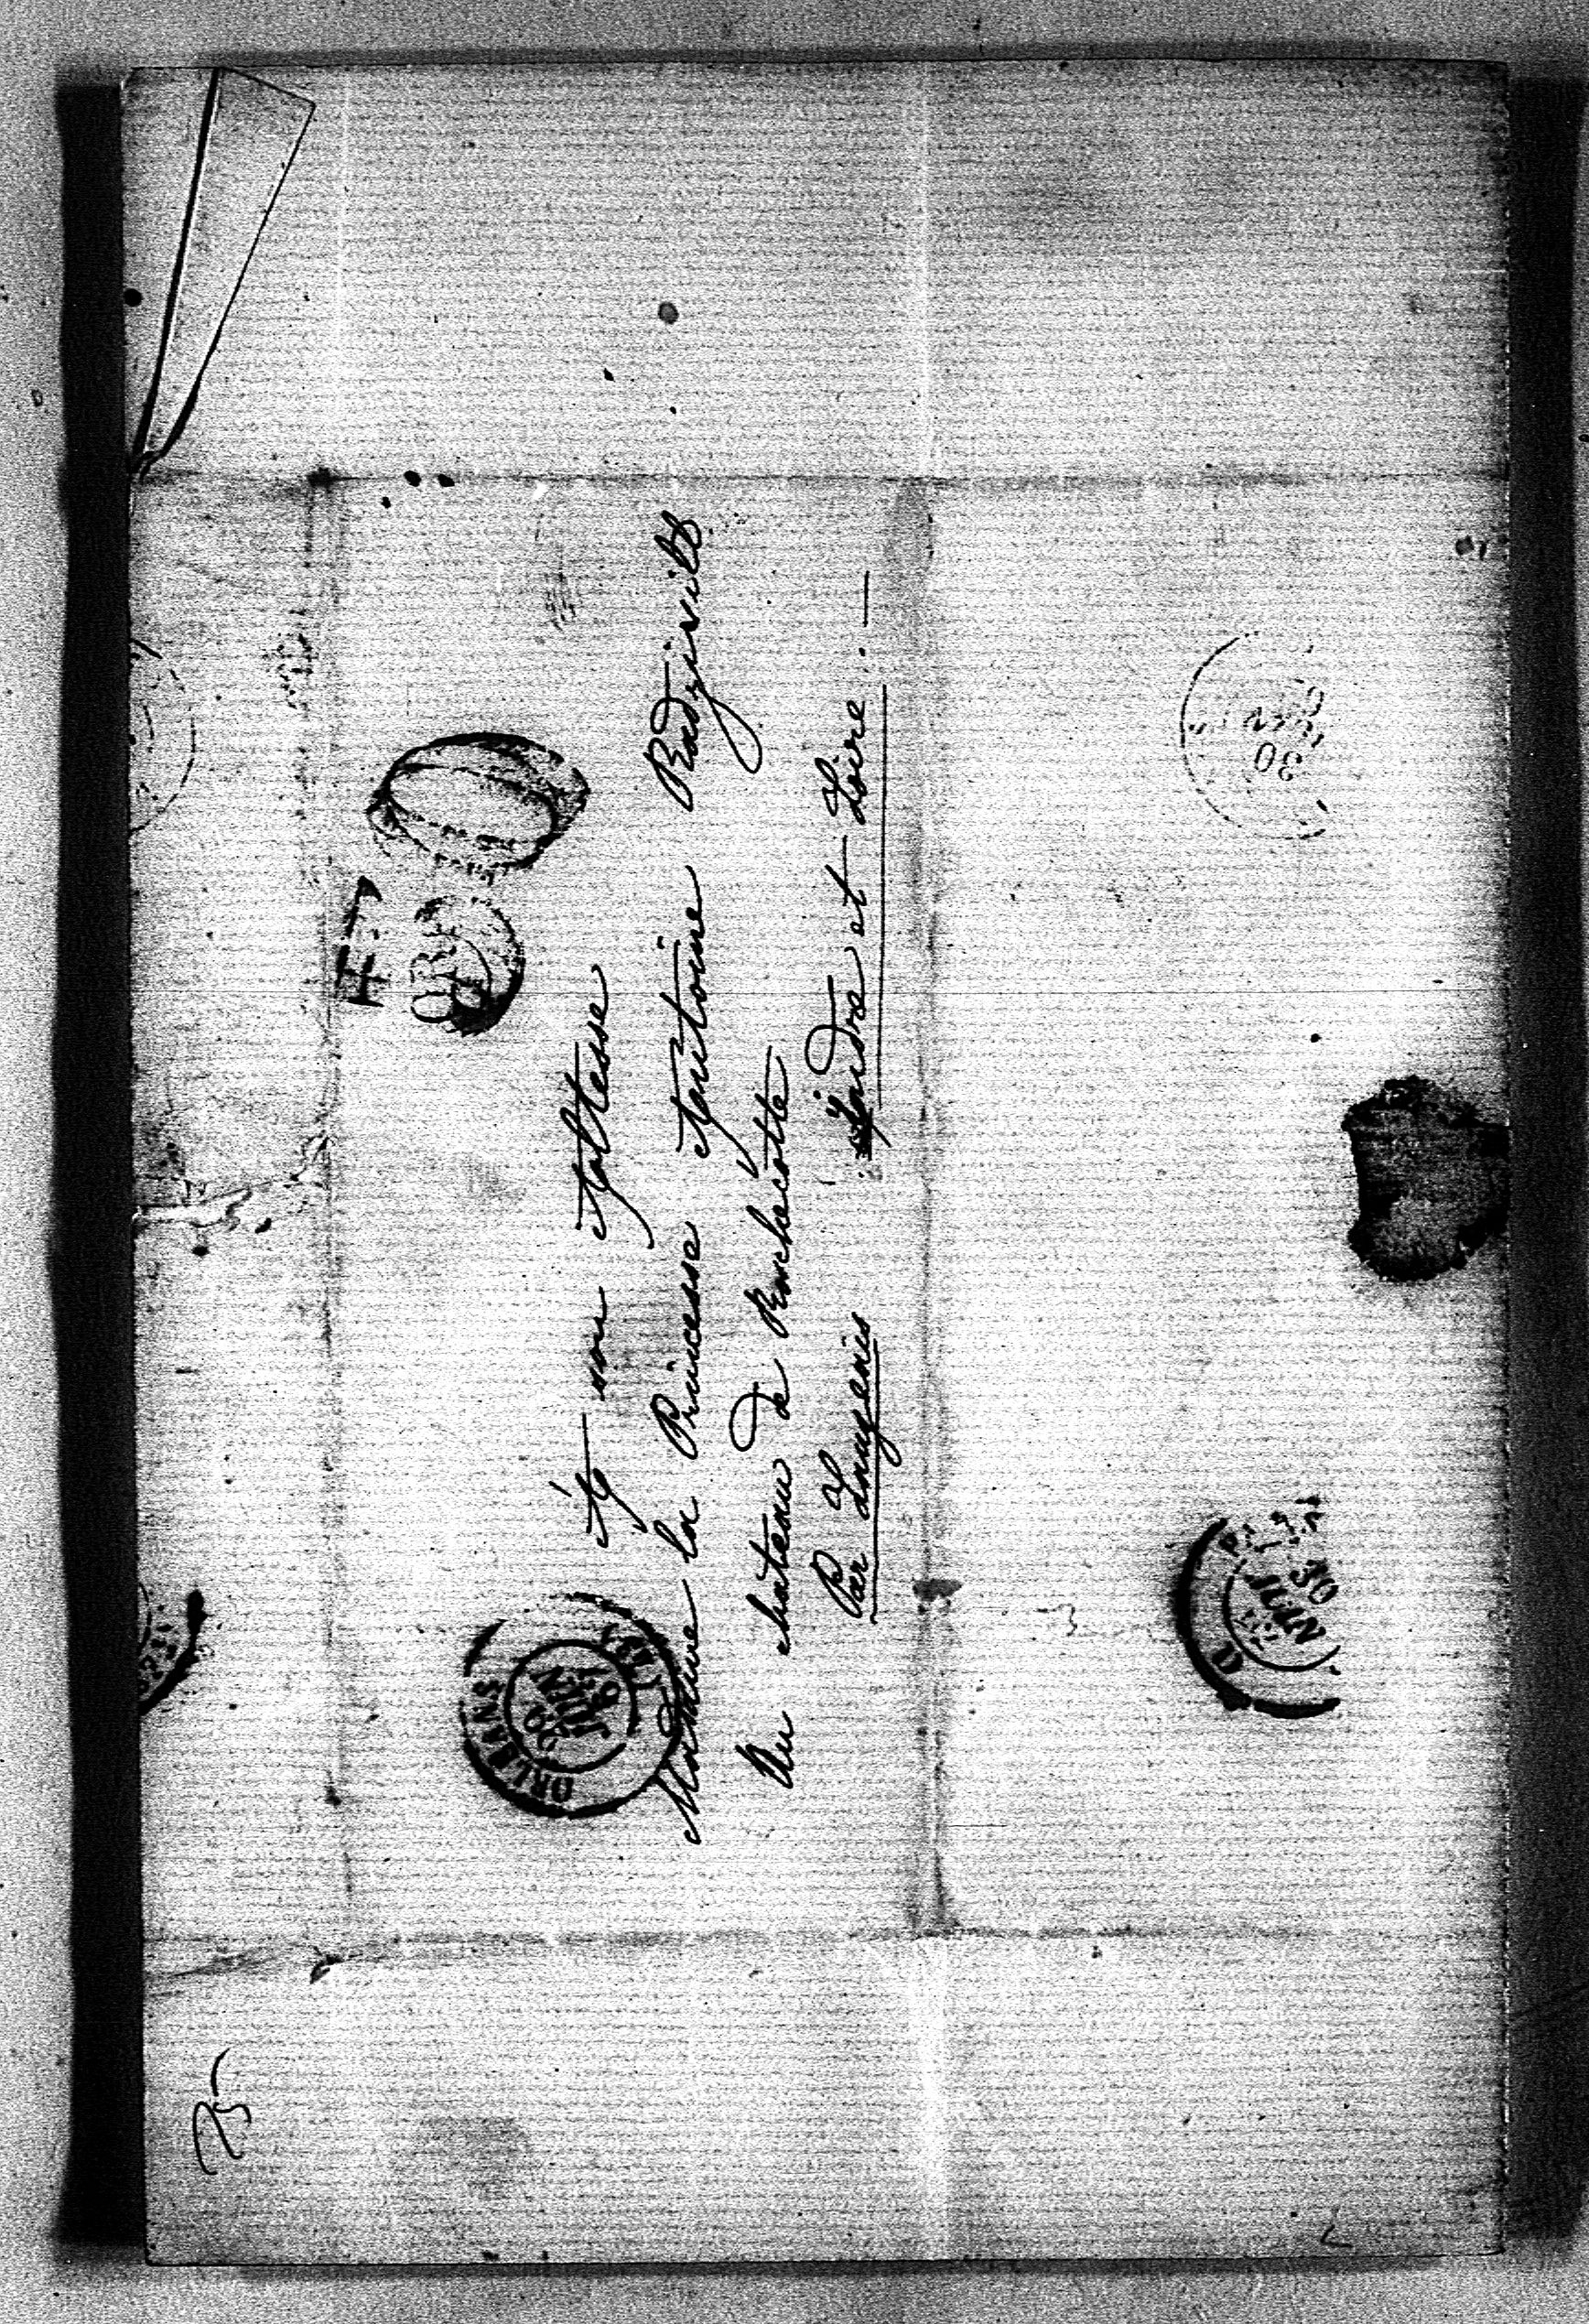 A son Altesse
Madame la Princesse Antoine Radzivill
Au chateau de Rochecotte
Par Langeais Indre et Loire. —
ORLEANS
JUIN
30
JUIN
30
75